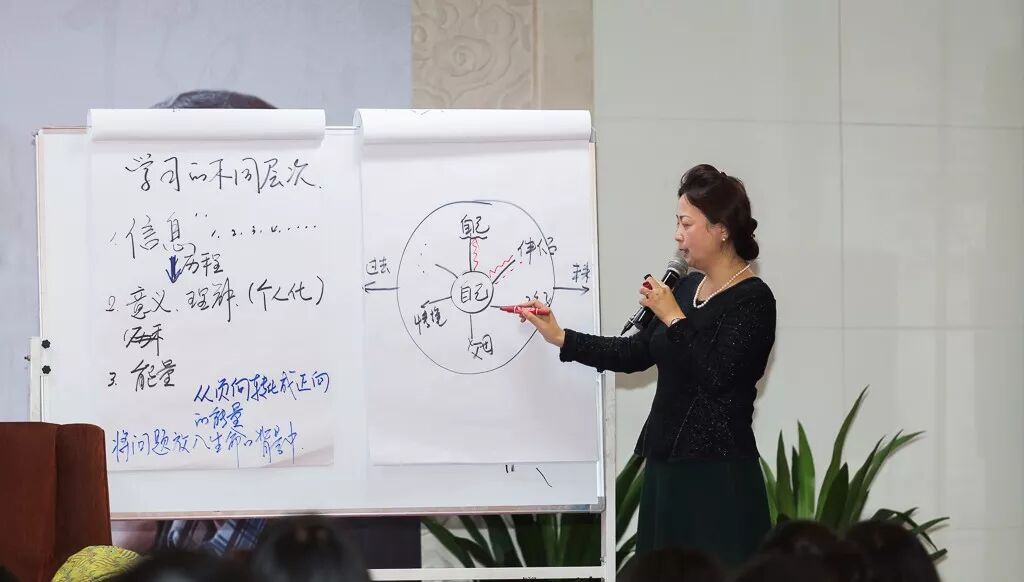 学习的不同层次.
1. 信息 1. 2. 3. 4. ......
历程
2. 意义、理解 (个人化)
3. 能量
从负向转化成正向
的能量
将问题放入生命的能量中.
自己
伴侣
过去
未来
自己
情境